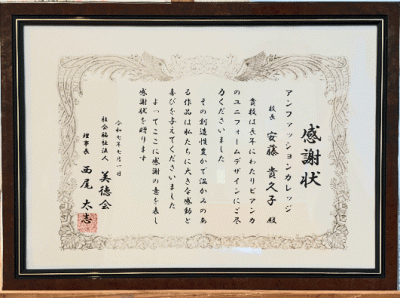 感謝状
アンファッションカレッジ
校長 安藤 貴久子 殿
貴校は長年にわたりビアンカ
のユニフォームデザインにご尽
力くださいました
その創造性豊かで温かみのあ
る作品は私たちに大きな感動と
喜びを与えてくださいました
よってここに感謝の意を表し
感謝状を贈ります
令和七年七月一日
社会福祉法人 美徳会
理事長 西尾 太志